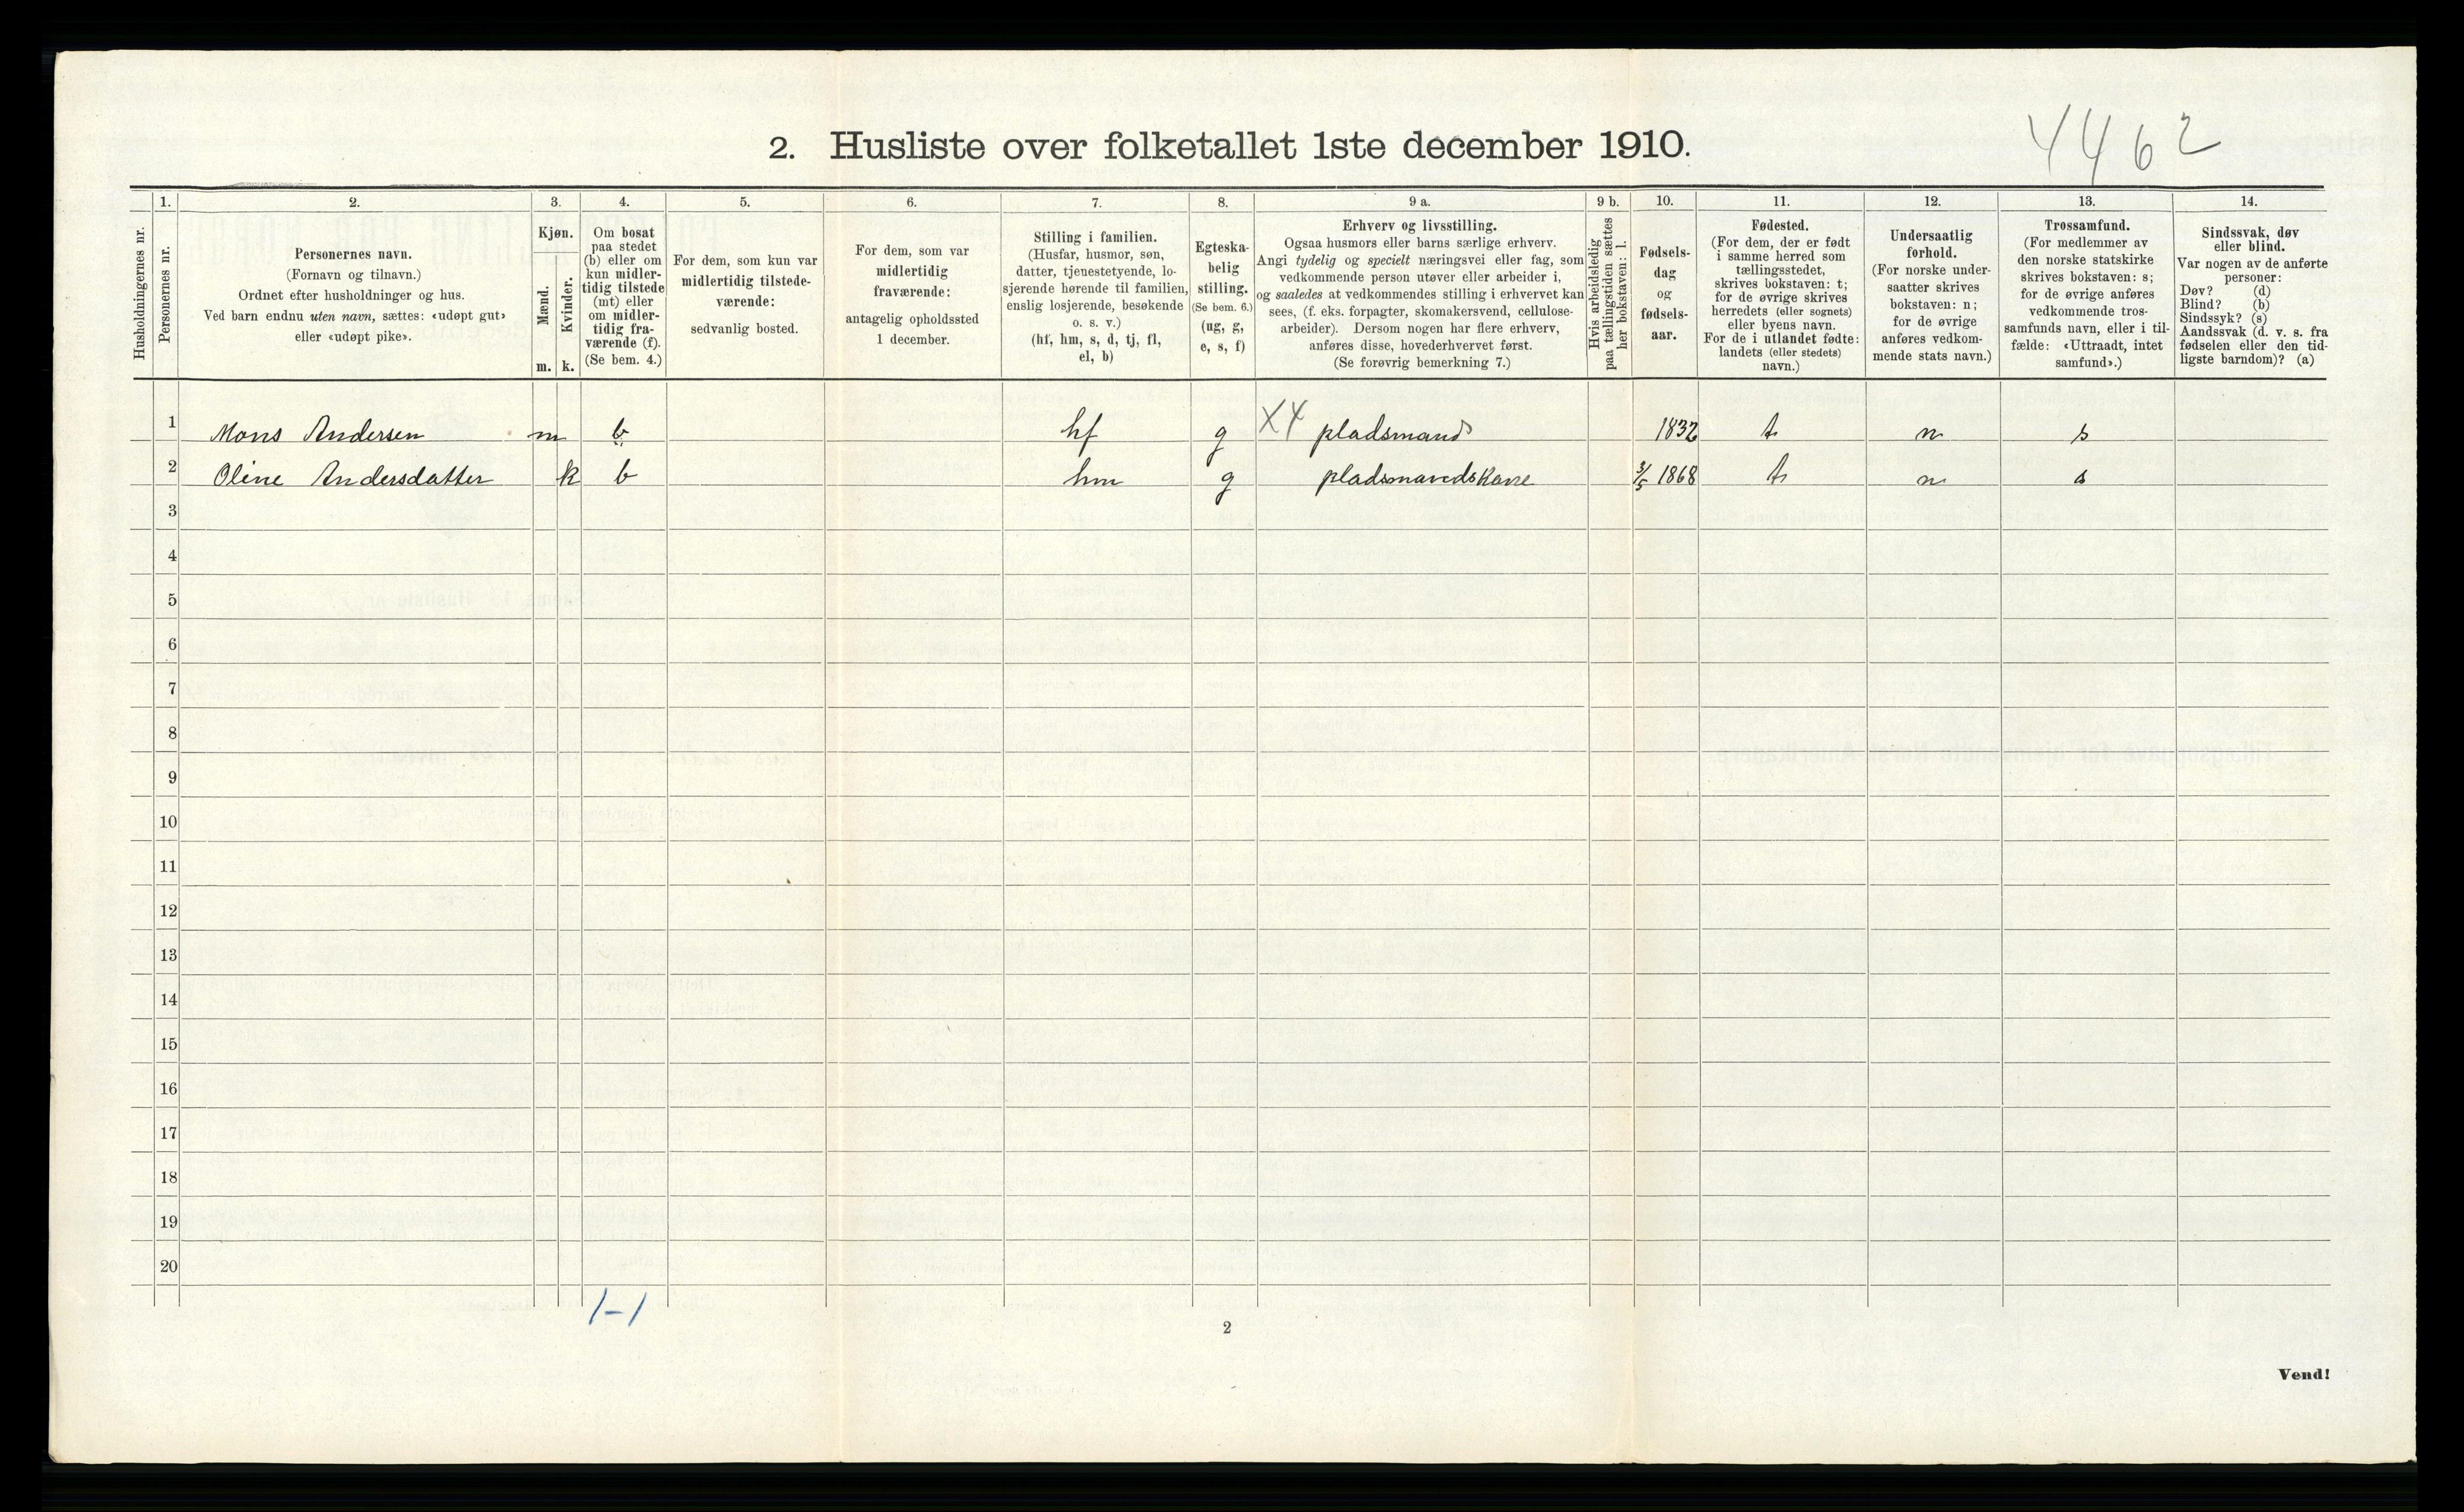 4462
2. Husliste over folketallet 1ste december 1910.
Husholdningernes nr.
1.
Personernes nr.
2.
Personernes navn.
(Fornavn og tilnavn.)
Ordnet efter husholdninger og hus.
Ved barn endnu uten navn, sættes: «udøpt gut»
eller «udøpt pike».
3.
Kjøn.
Mænd.
Kvinder.
m. k.
4.
Om bosat
paa stedet
(b) eller om
kun midler-
tidig tilstede
(mt) eller
om midler-
tidig fra-
værende (f).
(Se bem. 4.)
5.
For dem, som kun var
midlertidig tilstede-
værende:
sedvanlig bosted.
6.
For dem, som var
midlertidig
fraværende:
antagelig opholdssted
1 december.
7.
Stilling i familien.
(Husfar, husmor, søn,
datter, tjenestetyende, lo-
sjerende hørende til familien,
enslig losjerende, besøkende
o. s. v.)
(hf, hm, s, d, tj, fl,
el, b)
8.
Egteska-
belig
stilling.
(Se bem. 6.)
(ug, g,
e, s, f)
9 a.
Erhverv og livsstilling.
Ogsaa husmors eller barns særlige erhverv.
Angi tydelig og specielt næringsvei eller fag, som
vedkommende person utøver eller arbeider i,
og saaledes at vedkommendes stilling i erhvervet kan
sees, (f. eks. forpagter, skomakersvend, cellulose-
arbeider). Dersom nogen har flere erhverv,
anføres disse, hovederhvervet først.
(Se forøvrig bemerkning 7.)
9 b.
Hvis arbeidsledig
paa tællingstiden sættes
her bokstaven: l.
10.
Fødsels-
dag
og
fødsels-
aar.
11.
Fødested.
(For dem, der er født
i samme herred som
tællingsstedet,
skrives bokstaven: t;
for de øvrige skrives
herredets (eller sognets)
eller byens navn.
For de i utlandet fødte:
landets (eller stedets)
navn.)
12.
Undersaatlig
forhold.
(For norske under-
saatter skrives
bokstaven: n;
for de øvrige
anføres vedkom-
mende stats navn.)
13.
Trossamfund.
(For medlemmer av
den norske statskirke
skrives bokstaven: s;
for de øvrige anføres
vedkommende tros-
samfunds navn, eller i til-
fælde: «Uttraadt, intet
samfund».)
14.
Sindssvak, døv
eller blind.
Var nogen av de anførte
personer:
Døv? (d)
Blind? (b)
Sindssyk? (s)
Aandssvak (d. v. s. fra
fødselen eller den tid-
ligste barndom)? (a)
1 Mons Andersen m b hf g X4 pladsmand 1832 t n s
2 Oline Andersdatter k b hm g pladsmandskone 3/5 1868 t n s
3
4
5
6
7
8
9
10
11
12
13
14
15
16
17
18
19
20
1-1
2
Vend!